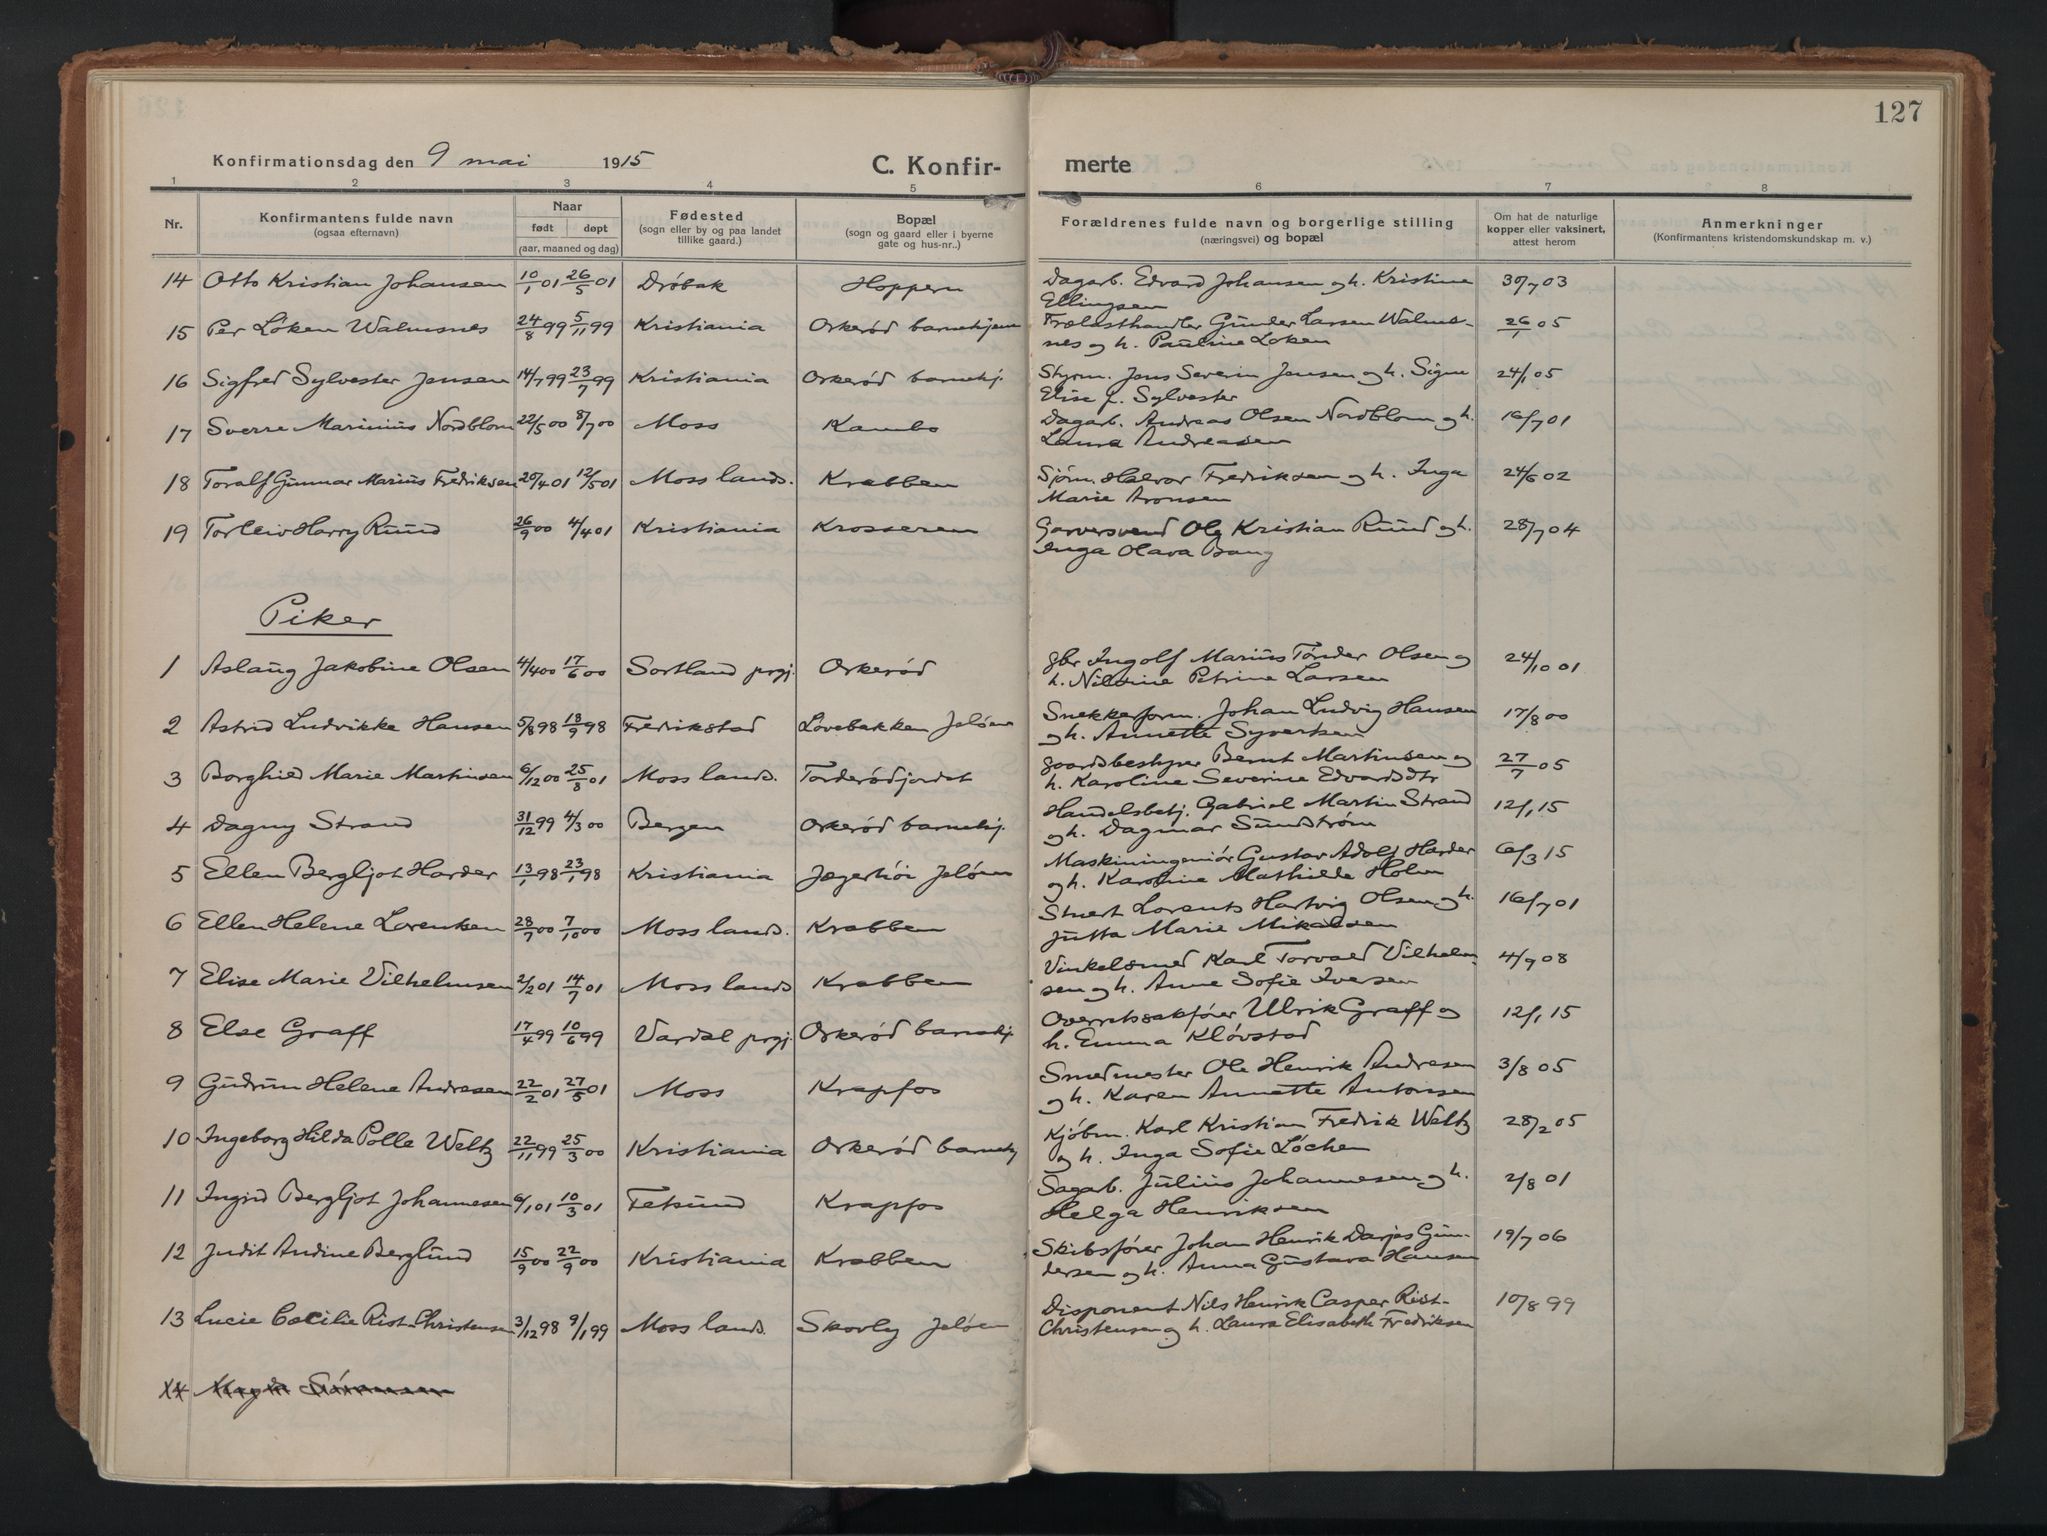 127
Konfirmationsdag den 9 mai 1915
C. Konfir-
merte
1 2 3 4 5 6 7 8
Nr.
Konfirmantens fulde navn
(ogsaa efternavn)
Naar
født døpt
(aar, maaned og dag)
Fødested
(sogn eller by og paa landet
tillike gaard.)
Bopæl
(sogn og gaard eller i byerne
gate og hus-nr..)
Forældrenes fulde navn og borgerlige stilling
(næringsvei) og bopæl
Om hat de naturlige
kopper eller vaksinert,
attest herom
Anmerkninger
(Konfirmantens kristendomskundskap m. v.)
14 Otto Kristian Johansen 10/1 01 26/5 01 Drøbak Hoppern Dagarb. Edvard Johansen og h. Kristine 30/7 03
Ellingsen
15 Per Løken Walmsnes 24/8 99 5/11 99 Kristiania Orkerød barnehjem Frølasthandler Gunder Larsen Walms- 26/1 05
nes og h. Pauline Løken
16 Sigfred Sylvester Jensen 14/7 99 23/7 99 Kristiania Orkerød barnehj. Styrm. Jens Severin Jensen og h. Signe 24/1 05
Elise f. Sylvester
17 Sverre Marinius Nordblom 22/5 00 8/7 00 Moss Kambo Dagarb. Andreas Olsen Nordblom og h. 16/7 01
Laura Andreasen
18 Toralf Gunnar Marius Fredriksen 20/4 01 12/5 01 Moss lands. Krabben Sjøm. Halvor Fredriksen og h. Inga 24/6 02
Marie Aronsen
19 Torleiv Harry Ruud 26/9 00 4/4 01 Kristiania Krosseren Garversvend Ole Kristian Ruud og h. 28/7 04
Inga Olava Bang
Piker
1 Aslaug Jakobine Olsen 4/4 00 17/6 00 Sortland prgj. Orkerød gbr Ingolf Marius Tønder Olsen og 24/10 01
h. Nilsine Petrine Larsen
2 Astrid Ludvikke Hansen 5/8 98 18/9 98 Fredrikstad Løvebakken Jeløen Snekkerform. Johan Ludvig Hansen 17/8 00
og h. Annette Syvertsen
3 Borghild Marie Martinsen 6/12 00 25/8 01 Moss lands. Torderødjordet gaardsbestyrer Bernt Martinsen og 27/7 05
h. Karoline Severine Edvardsdtr
4 Dagny Strand 31/12 99 4/3 00 Bergen Orkerød barnehj. Handelsbetj. Gabriel Martin Strand 12/1 15
og h. Dagmar Sundstrøm
5 Ellen Bergljot Harder 13/1 98 23/1 98 Kristiania Jægerhøi Jeløen Maskiningeniør Gustav Adolf Harder 6/3 15
og h. Karoline Mathilde Holm
6 Ellen Helene Lorentsen 28/7 00 7/10 00 Moss lands. Krabben Stuert Lorents Hartvig Olsen og h. 16/7 01
Jutta Marie Mikalsen
7 Elise Marie Vilhelmsen 2/2 01 14/7 01 Moss lands Krabben Vinkelsmed Karl Torvald Vilhelm- 4/7 08
sen og h. Anne Sofie Iversen
8 Else Graff 17/4 99 10/6 99 Vardal prgj. Orkerød barnehj Overretssakfører Ulrik Graff og 12/1 15
h. Emma Kløvstad
9 Gudrun Helene Andresen 22/2 01 27/5 01 Moss Krapfos Smedmester Ole Henrik Andresen 3/8 05
og h. Karen Annette Antonsen
10 Ingeborg Hilda Polle Weltz 22/11 99 25/3 00 Kristiania Orkerød barnehj Kjøbm. Karl Kristian Fredrik Weltz 28/2 05
og h. Inga Sofie Løchen
11 Ingrid Bergljot Johannesen 6/1 01 10/3 01 Fetsund Krapfos Sagarb. Julius Johannesen og h. 2/8 01
Helga Henriksen
12 Judit Andine Berglund 15/9 00 22/9 00 Kristiania Krabben Skibsfører Johan Henrik Darjes Gun- 19/7 06
dersen og h. Anna Gustava Hansen
13 Lucie Cæcilie Rist-Christensen 3/12 98 9/1 99 Moss lands. Skovly Jeløen Disponent Nils Henrik Casper Rist- 10/8 99
Christensen og h. Laura Elisabeth Fredriksen
14 Magda Sørensen